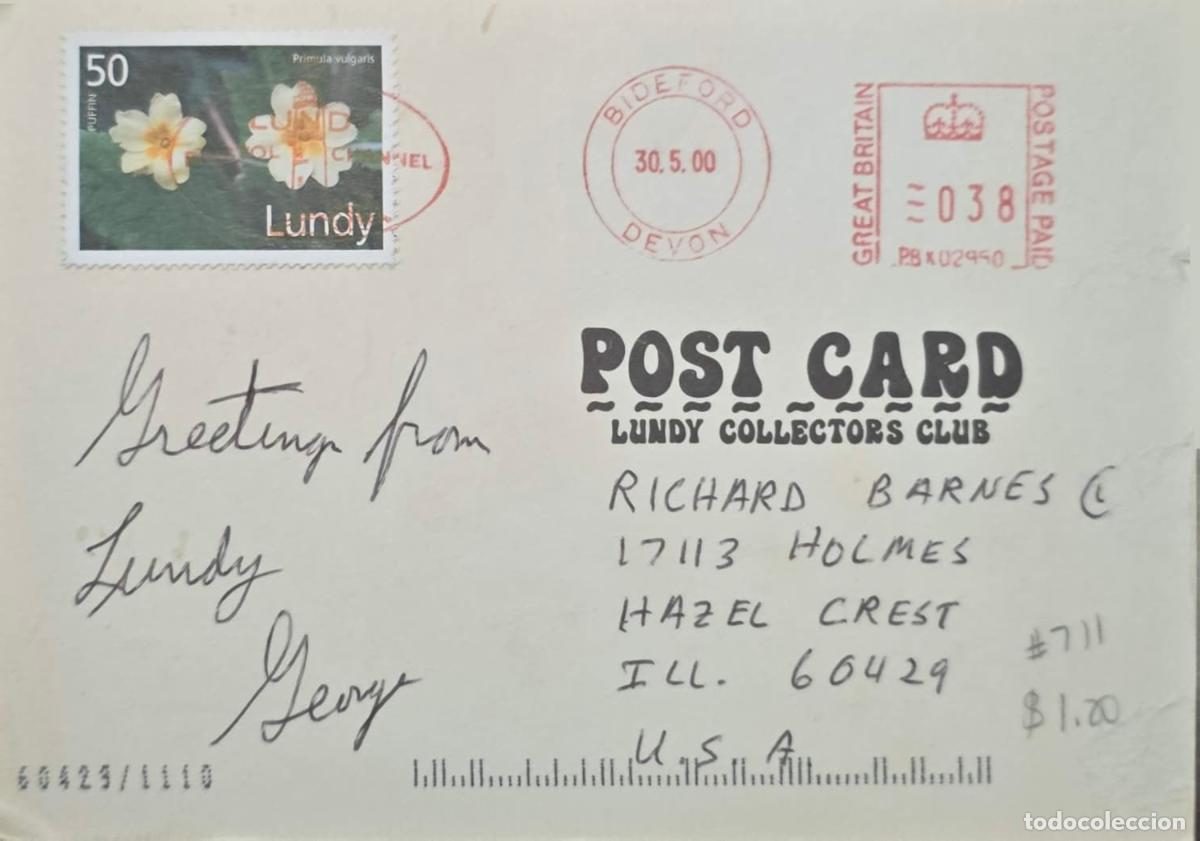 50
Primula vulgaris
PUFFIN
LUNDY
CHANNEL
Lundy
BIDEFORD
30.5.00
DEVON
GREAT BRITAIN
038
POSTAGE PAID
PB 02950
POST CARD
LUNDY COLLECTORS CLUB
Greetings from
Lundy
George
RICHARD BARNES
17113 HOLMES
HAZEL CREST
ILL. 60429
U.S.A
#711
$1.20
60429/1110
todocoleccion